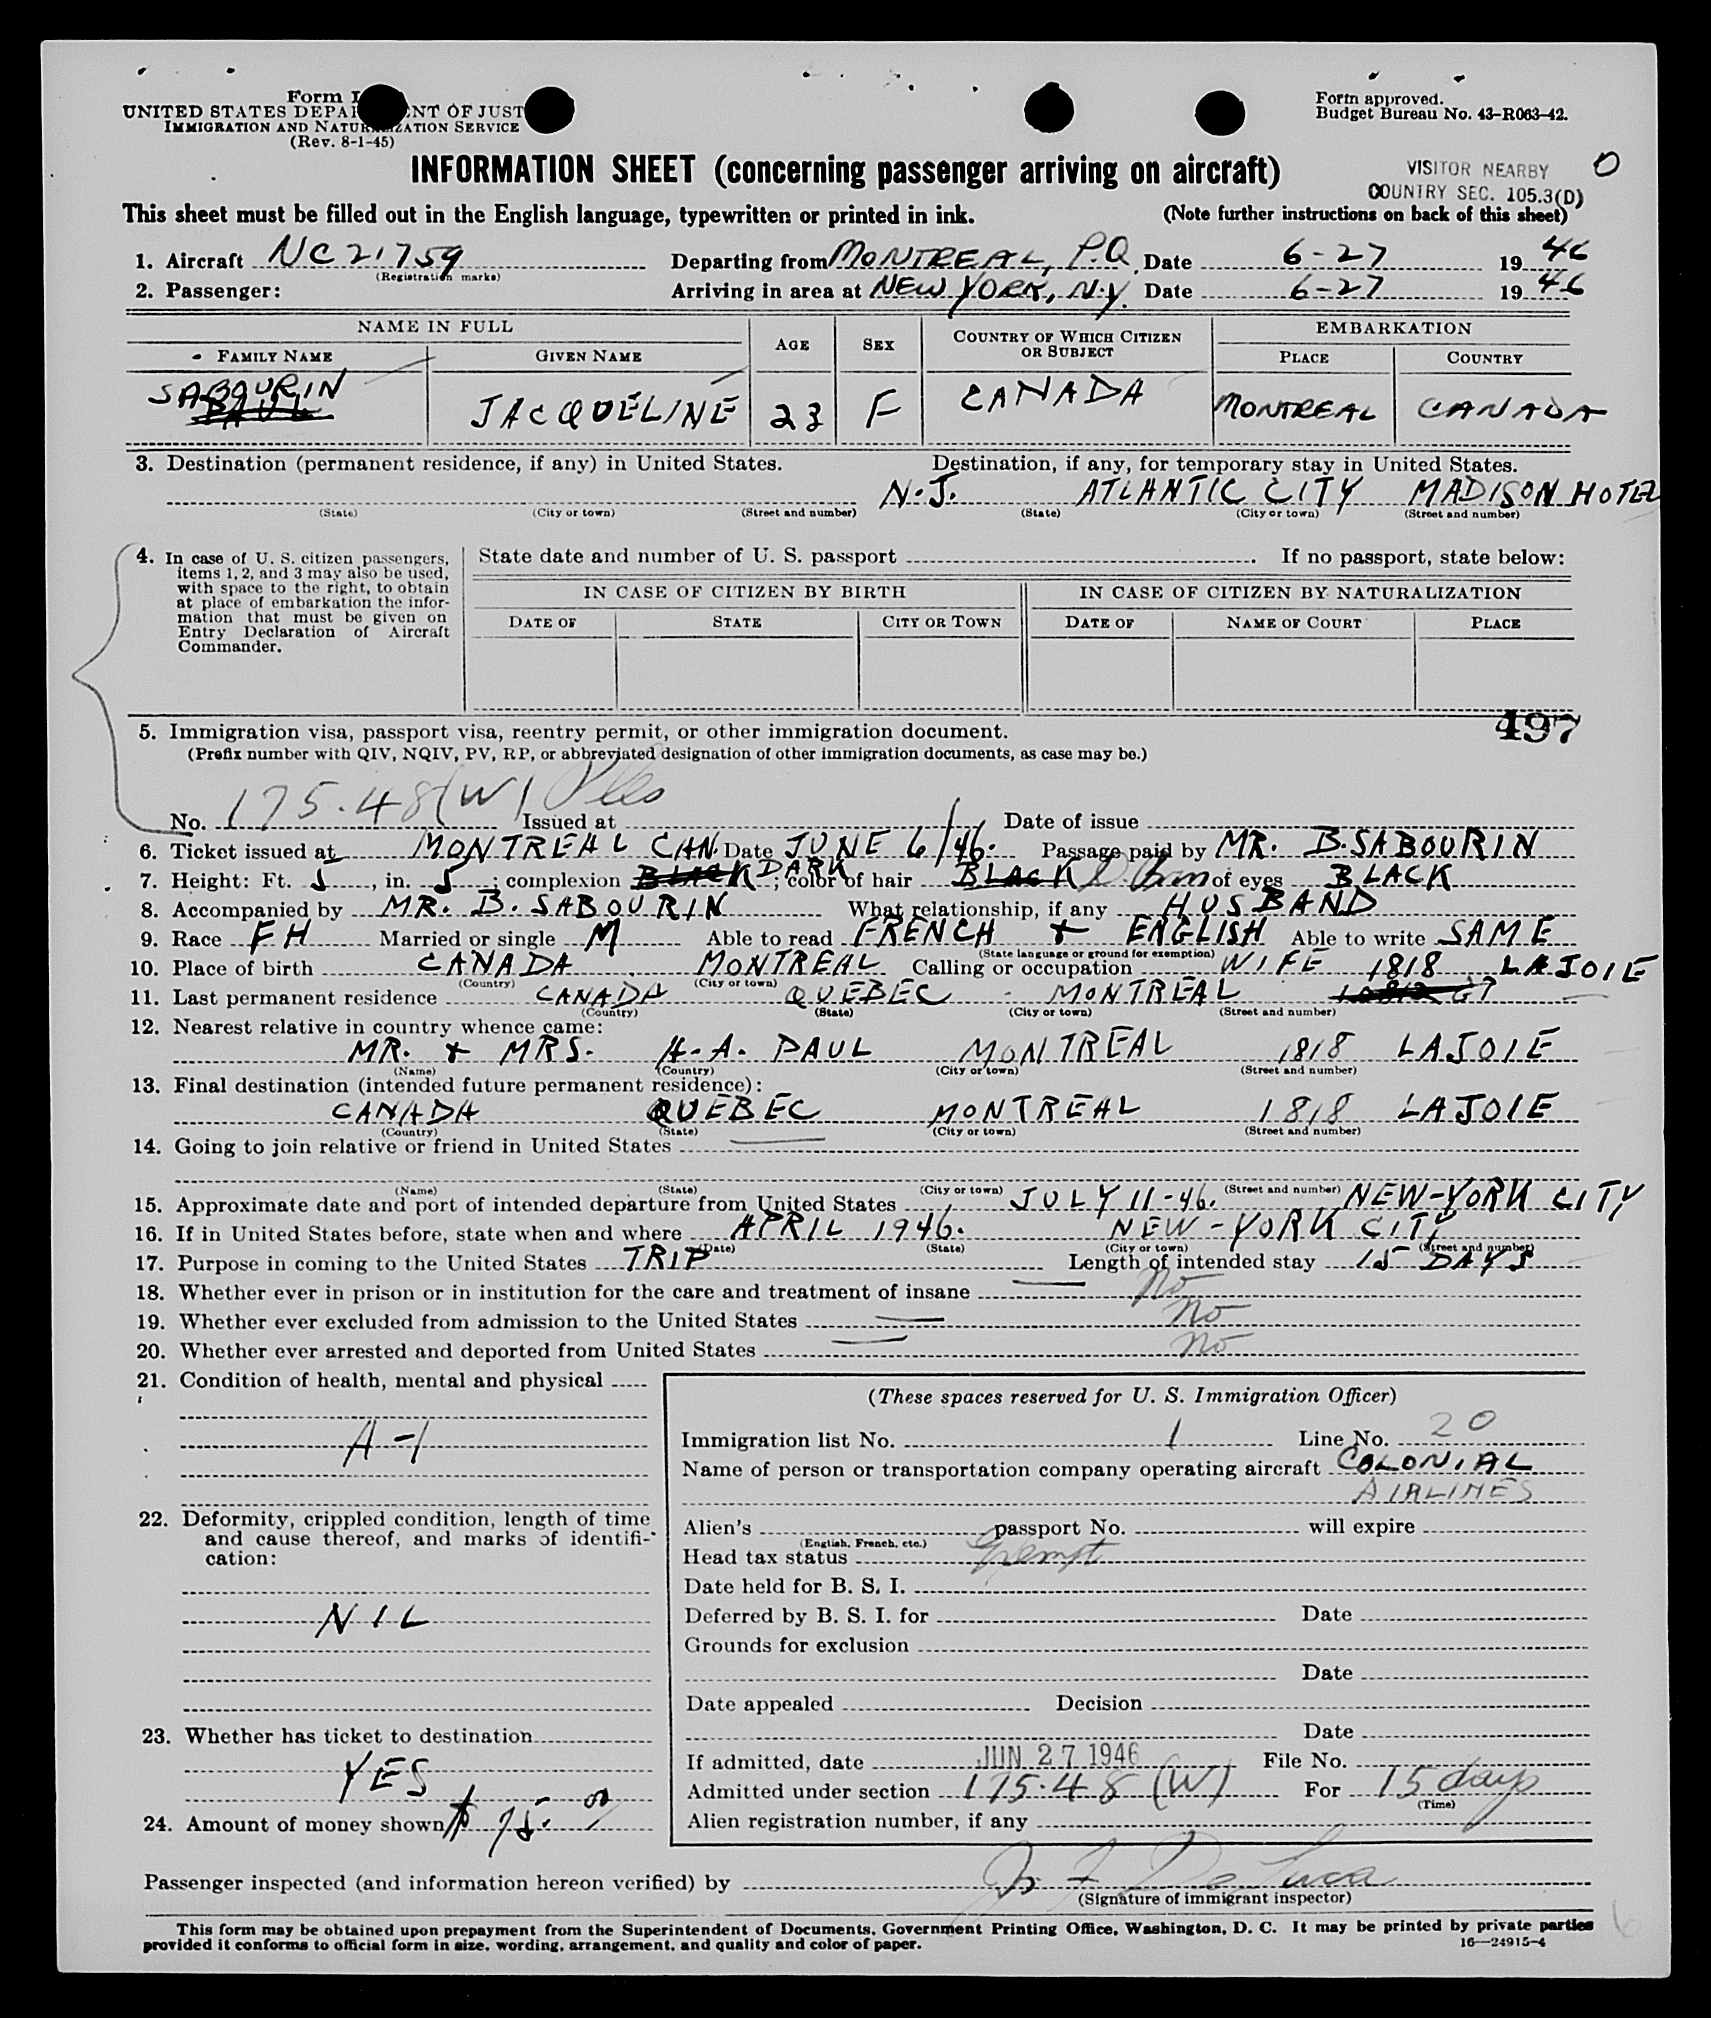 Form I
UNITED STATES DEPA NT OF JUST
IMMIGRATION AND NATURALIZATION SERVICE
(Rev. 8-1-45)
Form approved.
Budget Bureau No. 43-R063-42.
INFORMATION SHEET (concerning passenger arriving on aircraft)
VISITOR NEARBY O
COUNTRY SEC. 105.3(D)
This sheet must be filled out in the English language, typewritten or printed in ink. (Note further instructions on back of this sheet)
1. Aircraft NC 21759 Departing from MONTREAL, P.Q. Date 6-27 1946
(Registration marks)
2. Passenger: Arriving in area at NEW YORK, N.Y. Date 6-27 1946
NAME IN FULL AGE SEX COUNTRY OF WHICH CITIZEN OR SUBJECT EMBARKATION
FAMILY NAME GIVEN NAME PLACE COUNTRY
SABOURIN JACQUELINE 23 F CANADA MONTREAL CANADA
PAUL
3. Destination (permanent residence, if any) in United States. Destination, if any, for temporary stay in United States.
N.J. ATLANTIC CITY MADISON HOTEL
(State) (City or town) (Street and number) (State) (City or town) (Street and number)
4. In case of U. S. citizen passengers, items 1, 2, and 3 may also be used, with space to the right, to obtain at place of embarkation the information that must be given on Entry Declaration of Aircraft Commander.
State date and number of U. S. passport . If no passport, state below:
IN CASE OF CITIZEN BY BIRTH IN CASE OF CITIZEN BY NATURALIZATION
DATE OF STATE CITY OR TOWN DATE OF NAME OF COURT PLACE
497
5. Immigration visa, passport visa, reentry permit, or other immigration document.
(Prefix number with QIV, NQIV, PV, RP, or abbreviated designation of other immigration documents, as case may be.)
No. 175.48(W) Issued at Date of issue
6. Ticket issued at MONTREAL CAN. Date JUNE 6/46. Passage paid by MR. B. SABOURIN
7. Height: Ft. 5, in. 5; complexion BLACK DARK; color of hair BLACK of eyes BLACK
8. Accompanied by MR. B. SABOURIN What relationship, if any HUSBAND
9. Race FH Married or single M Able to read FRENCH & ENGLISH Able to write SAME
(State language or ground for exemption)
10. Place of birth CANADA MONTREAL Calling or occupation WIFE 1818 LAJOIE
(Country) (City or town)
11. Last permanent residence CANADA QUEBEC MONTREAL
(Country) (State) (City or town) (Street and number)
12. Nearest relative in country whence came:
MR. & MRS. H-A. PAUL MONTREAL 1818 LAJOIE
(Name) (Country) (City or town) (Street and number)
13. Final destination (intended future permanent residence):
CANADA QUEBEC MONTREAL 1818 LAJOIE
(Country) (State) (City or town) (Street and number)
14. Going to join relative or friend in United States
(Name) (State) (City or town) (Street and number)
15. Approximate date and port of intended departure from United States JULY 11-46. NEW-YORK CITY
16. If in United States before, state when and where APRIL 1946. NEW-YORK CITY
(Date) (State) (City or town) (Street and number)
17. Purpose in coming to the United States TRIP Length of intended stay 15 DAYS
18. Whether ever in prison or in institution for the care and treatment of insane No
19. Whether ever excluded from admission to the United States No
20. Whether ever arrested and deported from United States No
21. Condition of health, mental and physical
A-1
22. Deformity, crippled condition, length of time
and cause thereof, and marks of identifi-
cation:
NIL
23. Whether has ticket to destination
YES
24. Amount of money shown $ 75.00
(These spaces reserved for U. S. Immigration Officer)
Immigration list No. 1 Line No. 20
Name of person or transportation company operating aircraft COLONIAL
AIRLINES
Alien's passport No. will expire
(English, French, etc.)
Head tax status Exempt
Date held for B. S. I.
Deferred by B. S. I. for Date
Grounds for exclusion
Date
Date appealed Decision
Date
If admitted, date JUN 27 1946 File No.
Admitted under section 175.48 (W) For 15 days
(Time)
Alien registration number, if any
Passenger inspected (and information hereon verified) by De Luca
(Signature of immigrant inspector)
This form may be obtained upon prepayment from the Superintendent of Documents, Government Printing Office, Washington, D. C. It may be printed by private parties
provided it conforms to official form in size, wording, arrangement, and quality and color of paper. 16—24915-4